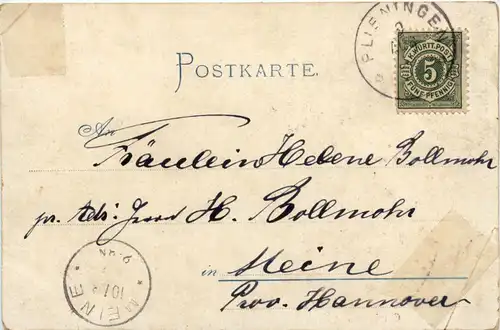 PLIENINGEN
K. WÜRTT. POST
5
FÜNF PFENNIG
POSTKARTE.
An
Fräulein Helene Bollmohr
pr. Adr: Herrn H. Bollmohr
in Meine
Prov. Hannover
MEINE